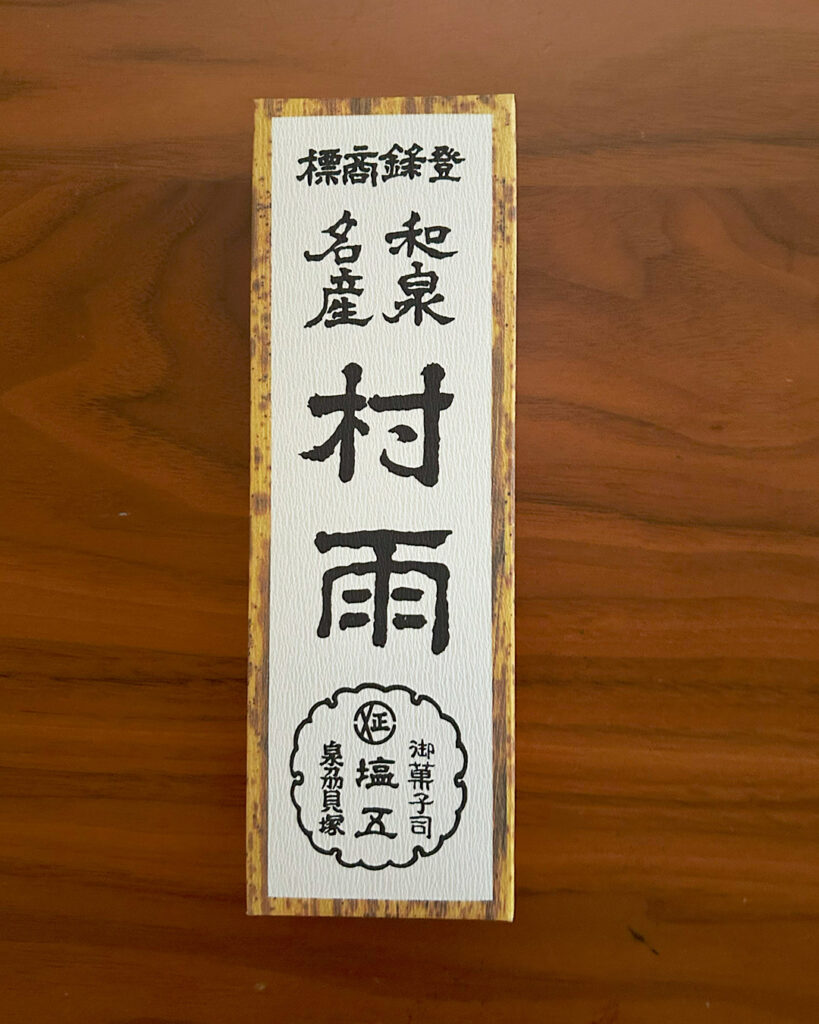 登録商標
和泉
名産
村雨
御菓子司
塩五
泉刕貝塚